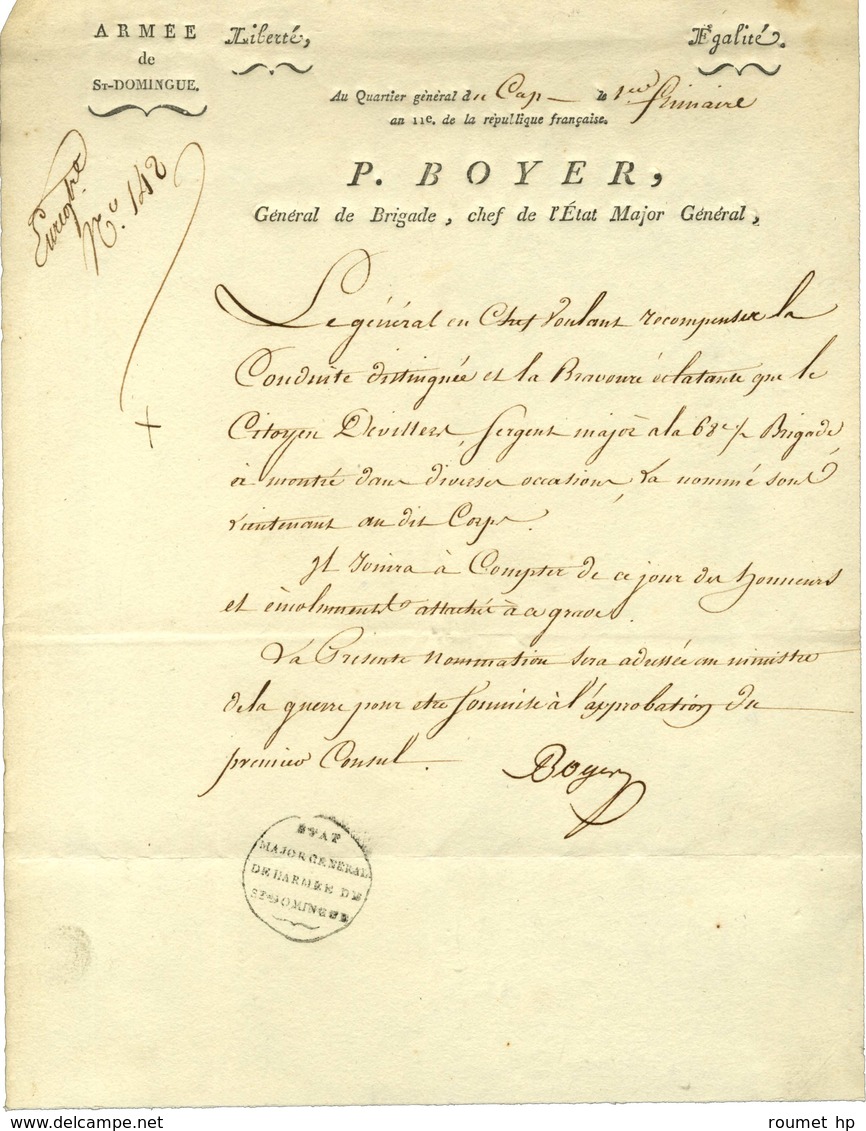 ARMÉE
de
ST-DOMINGUE.
Liberté,
Égalité.
Au Quartier général du Cap le 1er frimaire
an 11e. de la république française.
Enregtré
No. 142
P. BOYER,
Général de Brigade, chef de l'État Major Général,
Le général en Chef Voulant recompenser la
Conduite distinguée et la Bravoure éclatante que le
Citoyen Devillers, Sergent major a la 68e 1/2 Brigade
a montré dans diverses occasions, La nommé sous
Lieutenant au dit Corps.
Il Jouira à Compter de ce jour des honneurs
et émoluments attachés à ce grade.
La Présente nommation sera adressée au ministre
de la guerre pour etre soumise à l'approbation du
premier Consul.
Boyer
ETAT
MAJOR GENERAL
DE L'ARMÉE DE
ST-DOMINGUE
www.delcampe.net
roumet hp